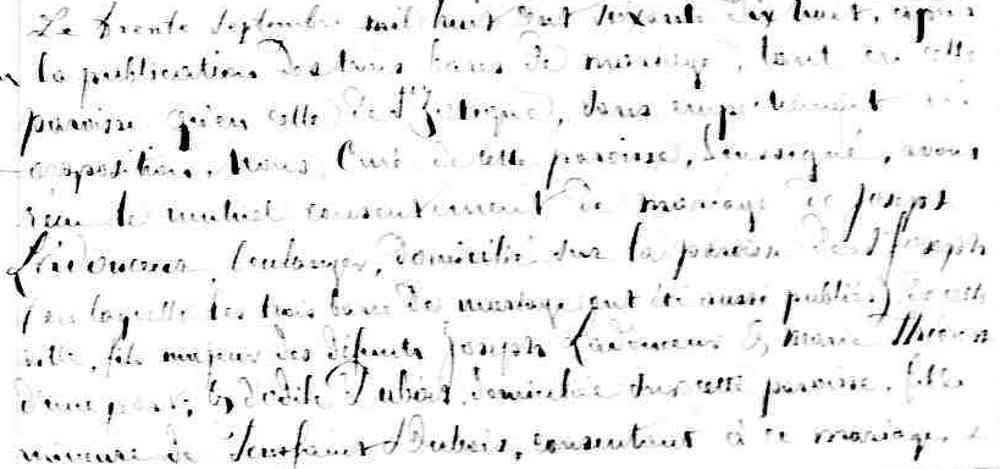 Le trente Septembre mil huit cent soixante dix huit, après
la publication des trois bans de mariage, tant en cette
paroisse qu'en celle de St Zotique, sans empêchement ni
opposition, Nous, Curé de cette paroisse, Soussigné, avons
reçu le mutuel consentement de mariage de Joseph
Ladouceur, boulanger, domicilié sur la paroisse de St Joseph
(en laquelle les trois bans de mariage ont été aussi publiés) de cette
ville, fils majeur des défunts Joseph Ladouceur & Marie
d'une part; & d'Odile Dubois, domiciliée sur cette paroisse, fille
mineure de Toussaint Dubois, consentant à ce mariage, &